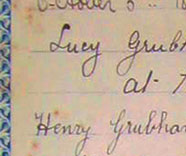 October 5
Lucy Grubh
at
Henry Grubham